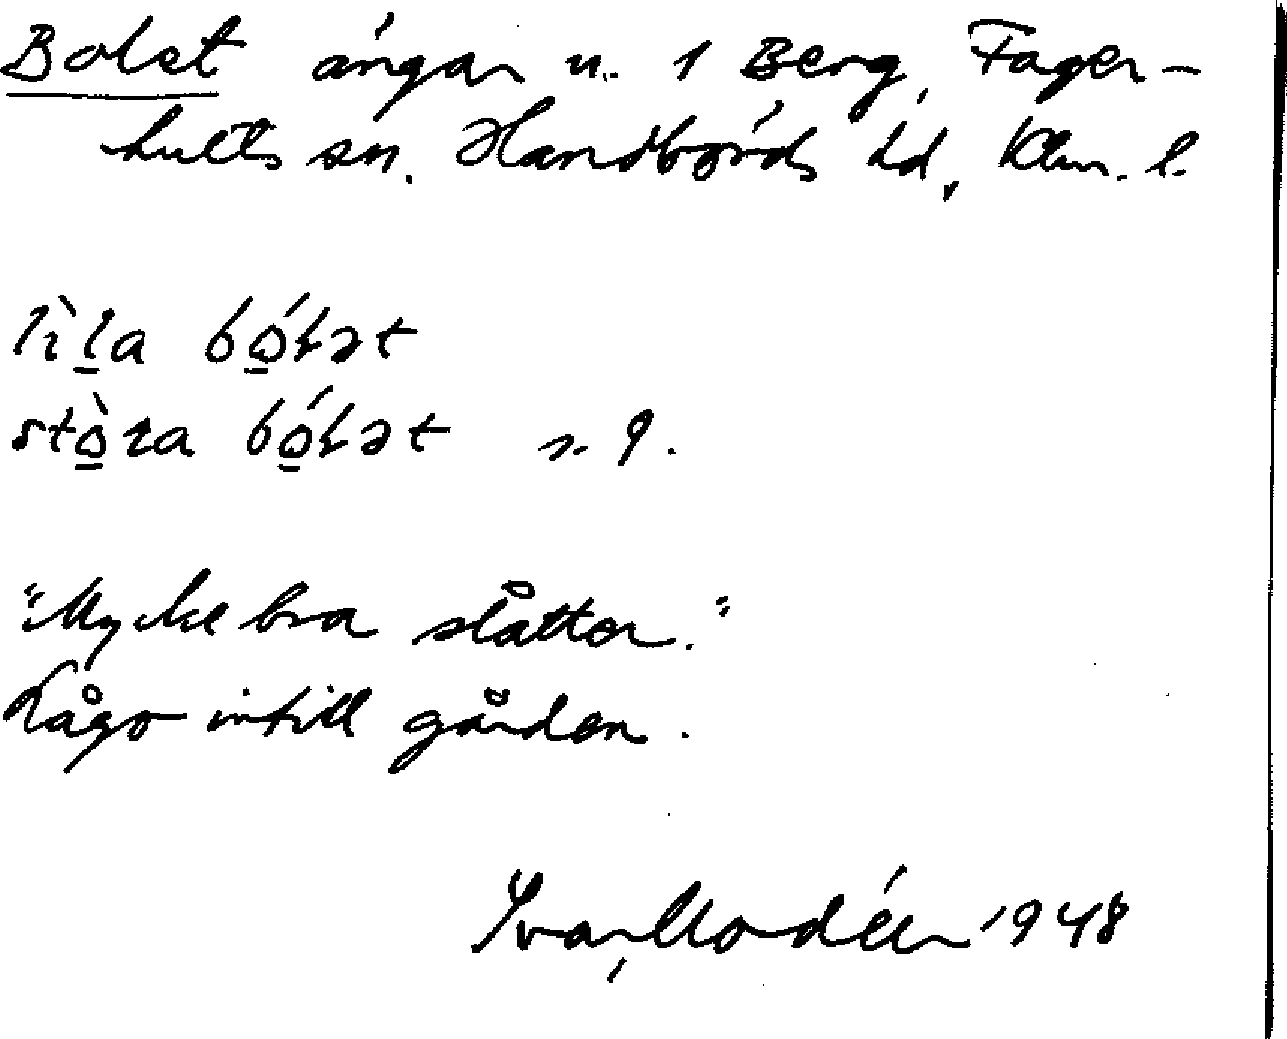 Bolet ängar u. 1 Berg, Fager-
hults sn. Handbörds hd, Klm. l.
lìl̠a bó̠łət
stò̠ra bó̠łət n. 9.
"Mycke bra slåtter."
Lågo intill gården.
Ivar Modéer 1948